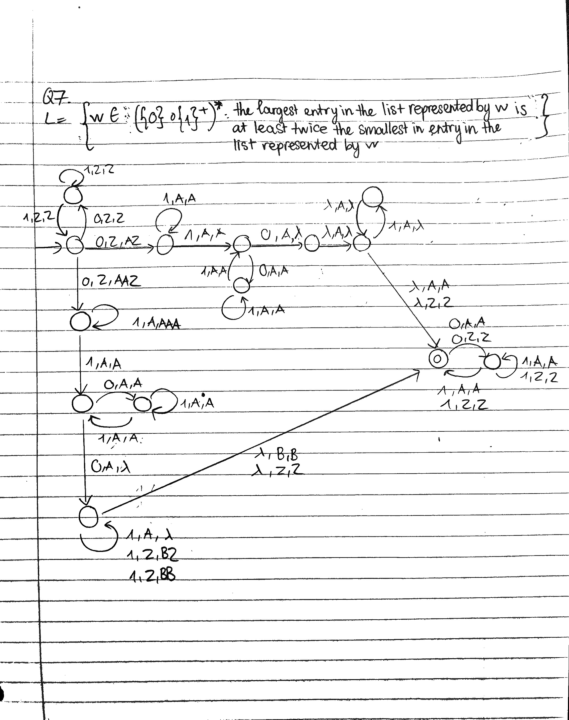 Q7.
L = { w ∈ ({0} ∘ {1}⁺)* : the largest entry in the list represented by w is
at least twice the smallest in entry in the
list represented by w }
1,2,2
1,2,2
0,2,2
1,A,A
λ,A,λ
1,A,λ
0,2,AZ
1,A,A
0,A,λ
λ,A,λ
0,Z,AAZ
1,A,A
0,A,A
1,A,AAA
1,A,A
λ,A,A
λ,Z,Z
1,A,A
0,A,A
0,A,A
0,Z,Z
1,A,A
1,A,A
1,Z,Z
1,A,A
1,A,A
1,Z,Z
0,A,λ
λ,B,B
λ,Z,Z
1,A,λ
1,Z,BZ
1,Z,BB